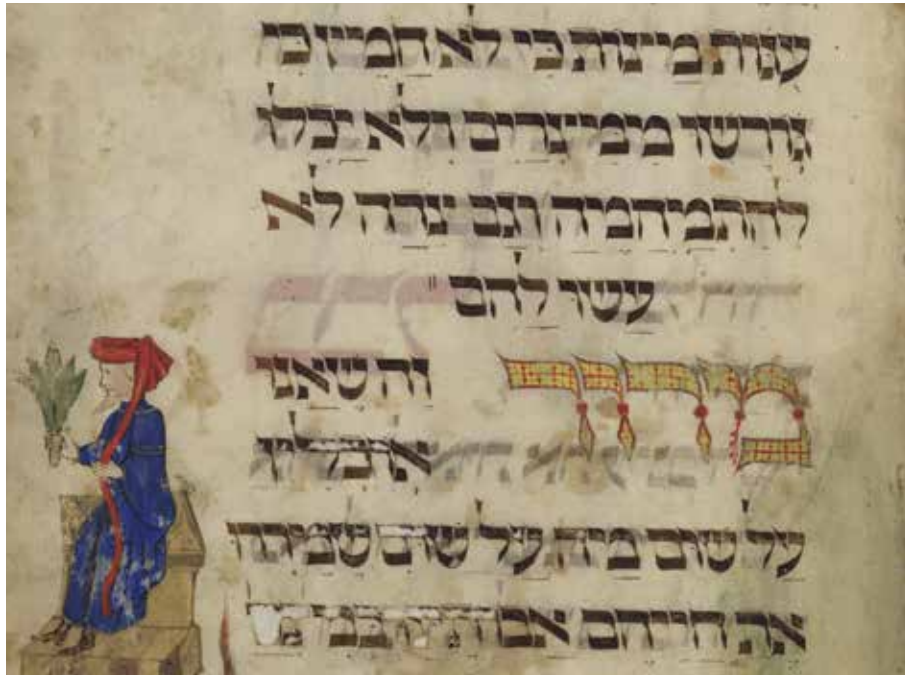 עגות מצות כי לא חמץ כי
גורשו ממצרים ולא יכלו
להתמהמה וגם צדה לא
עשו להם
מרור זה שאנו
אוכלין
על שום מה על שום שמררו
את